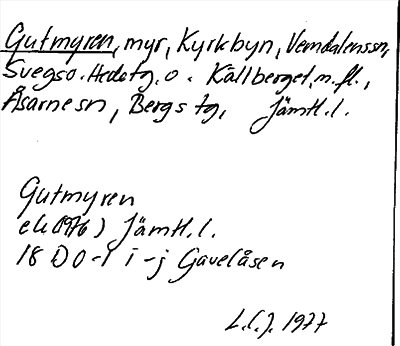 Gutmyren, myr, Kyrkbyn, Vemdalenssn,
Svegs o. Hede tg, o. Källberget, m.fl.,
Åsarnesn, Bergs tg, Jämtl. l.
Gutmyren
ek (1976) Jämtl. l.
18 D 0-1 i-j Gavelåsen
L.C.J. 1977